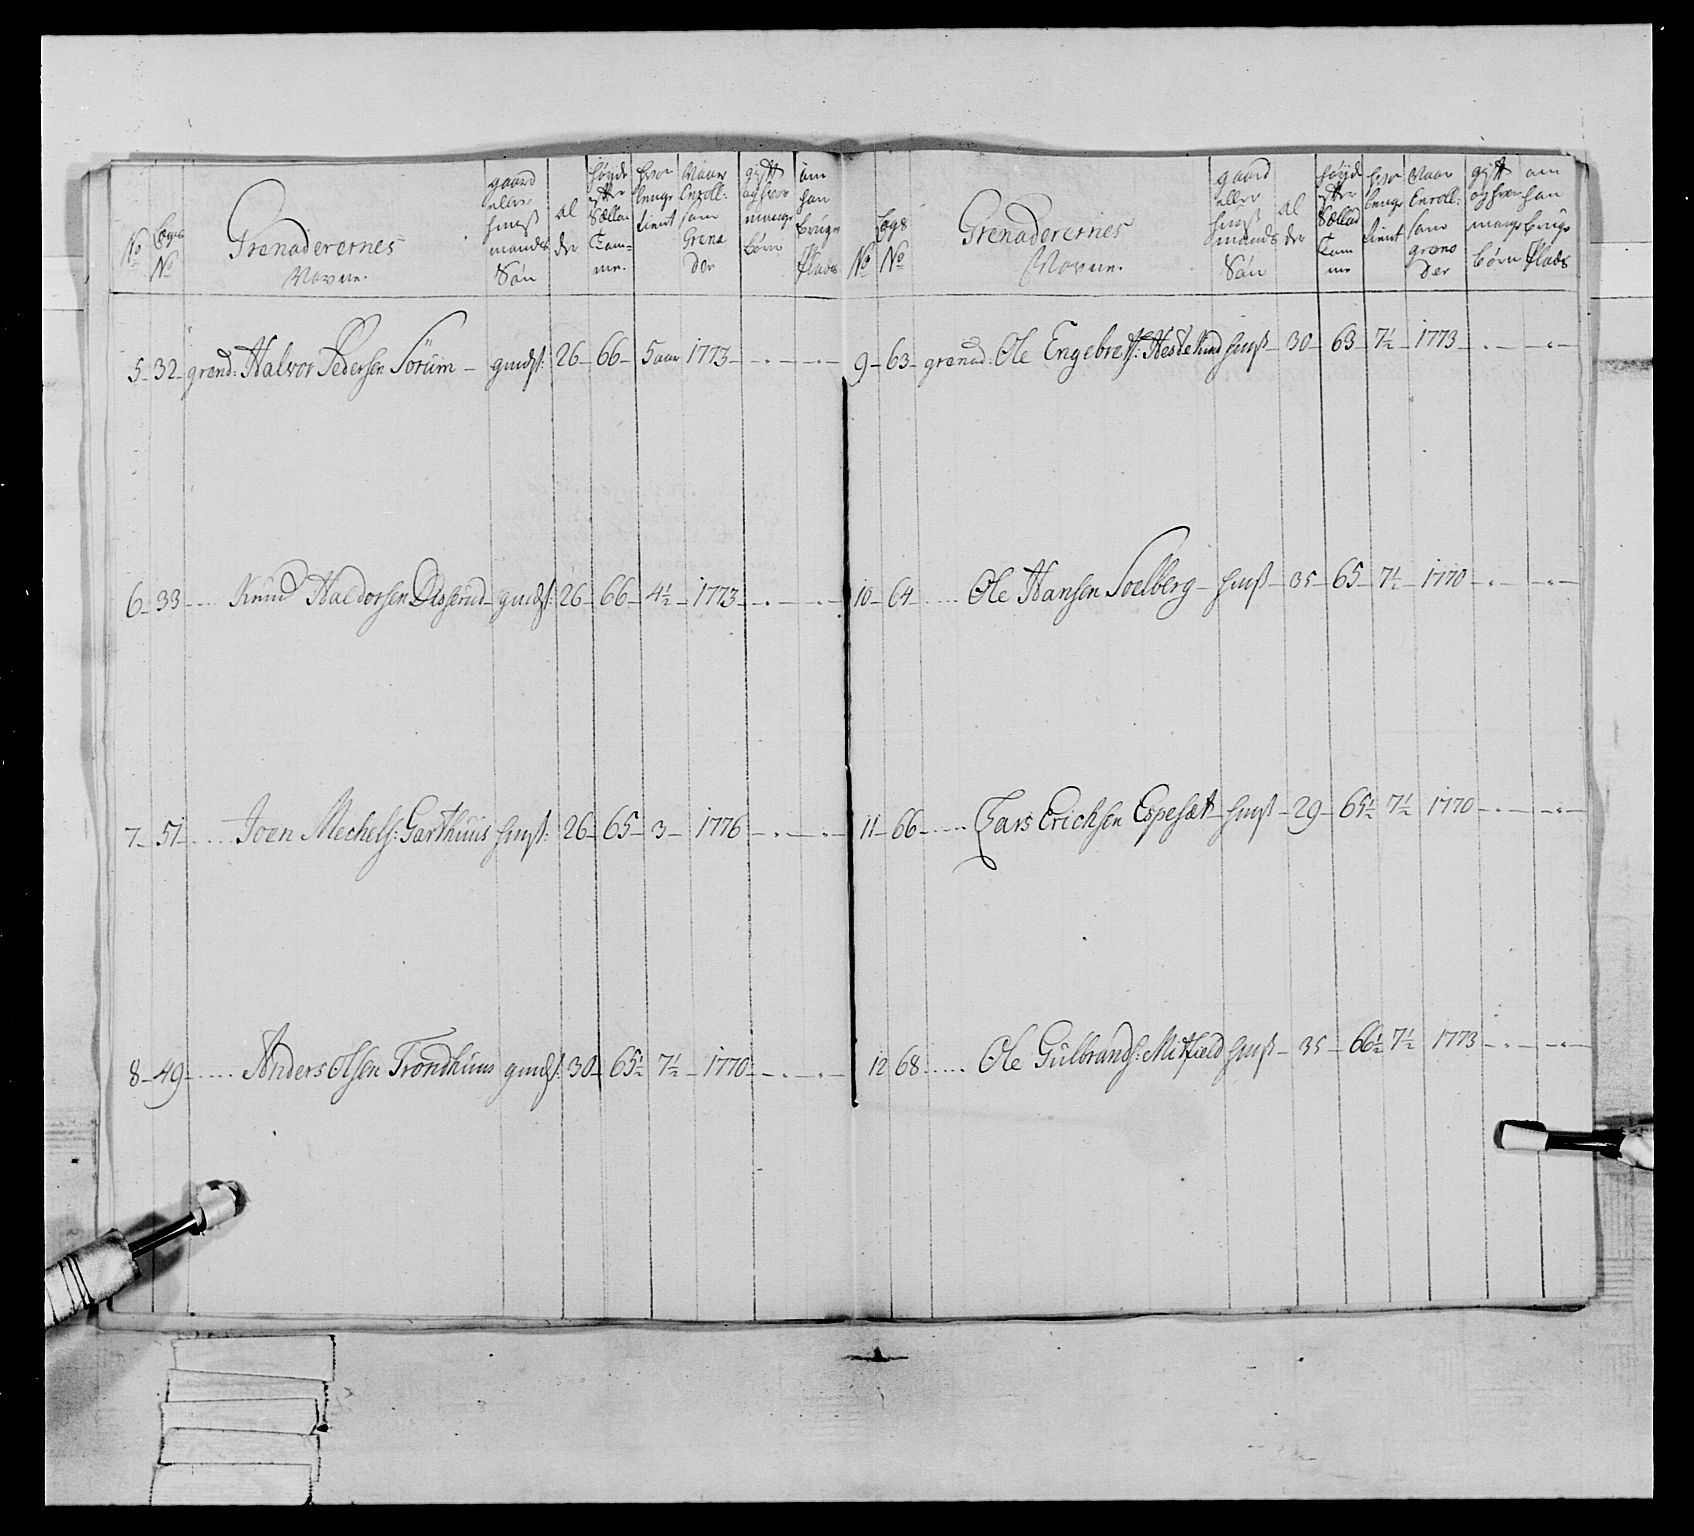 No
Legds No
Grenaderernes Navne.
gaard eller huus mands Søn
al der
høyde efter Sællan Tom- me.
hvor lenge tient
Naar Enroll: som Grena der
gift og hvor mange børn
om han bruger Plads
5 32 grend: Halvor Pedersen Sörum gmdsß: 26 66 5 aar 1773
6 33 Knud Haldorsen gmdsß: 26 66 4½ 1773
7 51 Joen Mechelß: Garthuus hmß: 26 65 3 1776
8 49 Anders Olsen Trondhuus gmdsß: 30 65½ 7½ 1770
No
Legds No
Grenaderernes Navne.
gaard eller huus mands Søn
al der
høyde efter Sælland Tom me
hvor lenge tient
Naar Enroll: som grena der
gift og hvor mange børn
om han bruge Plads
9 63 grenad: Ole Engebretß: Hestehud hmß 30 63 7½ 1773
10 64 Ole Hansen Soelberg hmß 35 65 7½ 1770
11 66 Lars Erichsen Espesæt hmß 29 65½ 7½ 1770
12 68 Ole Gülbrandß: Mitfield hmß 35 66½ 7½ 1773